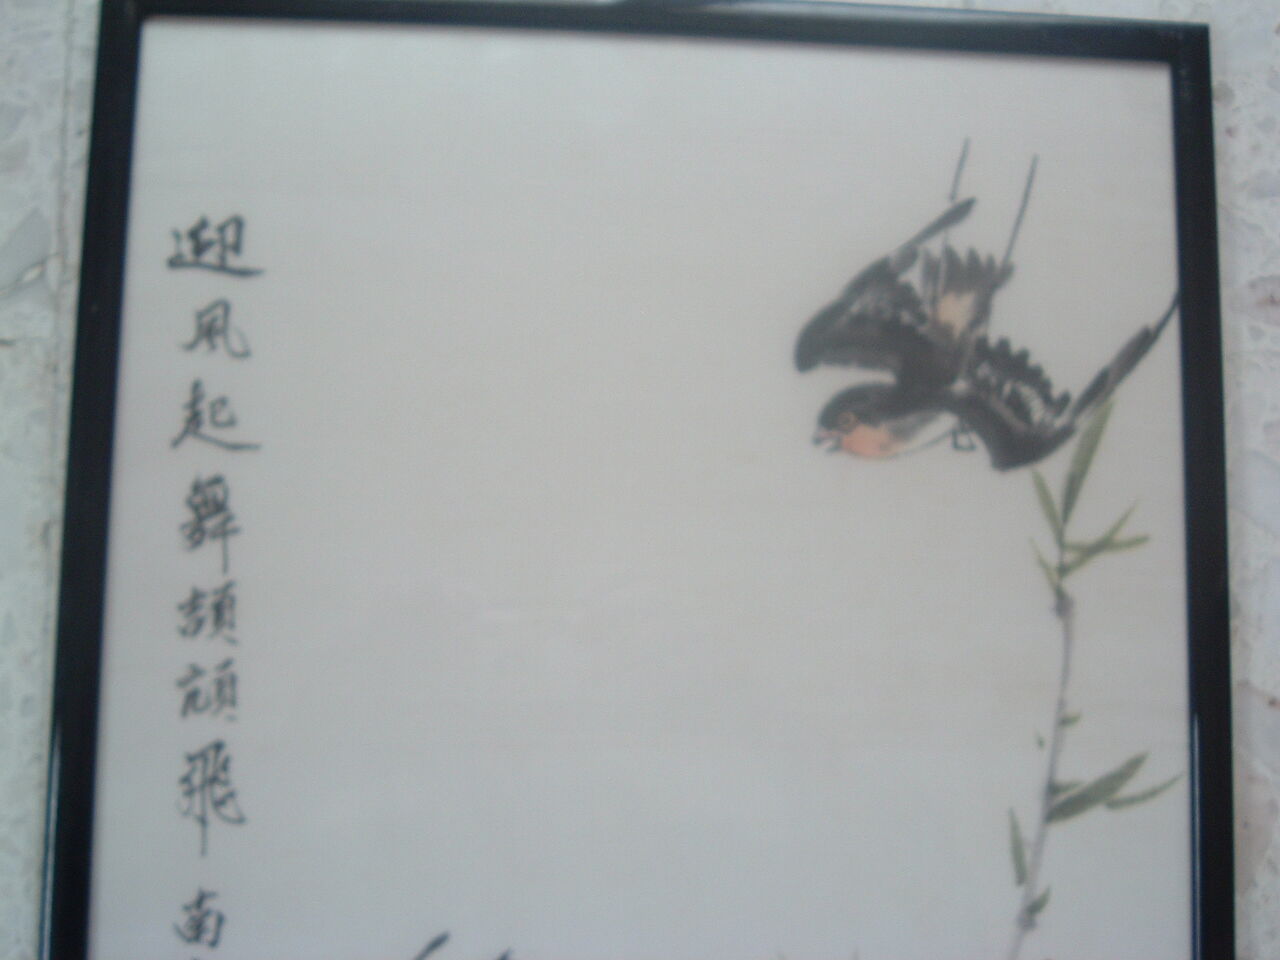 迎風起舞頡頏飛南